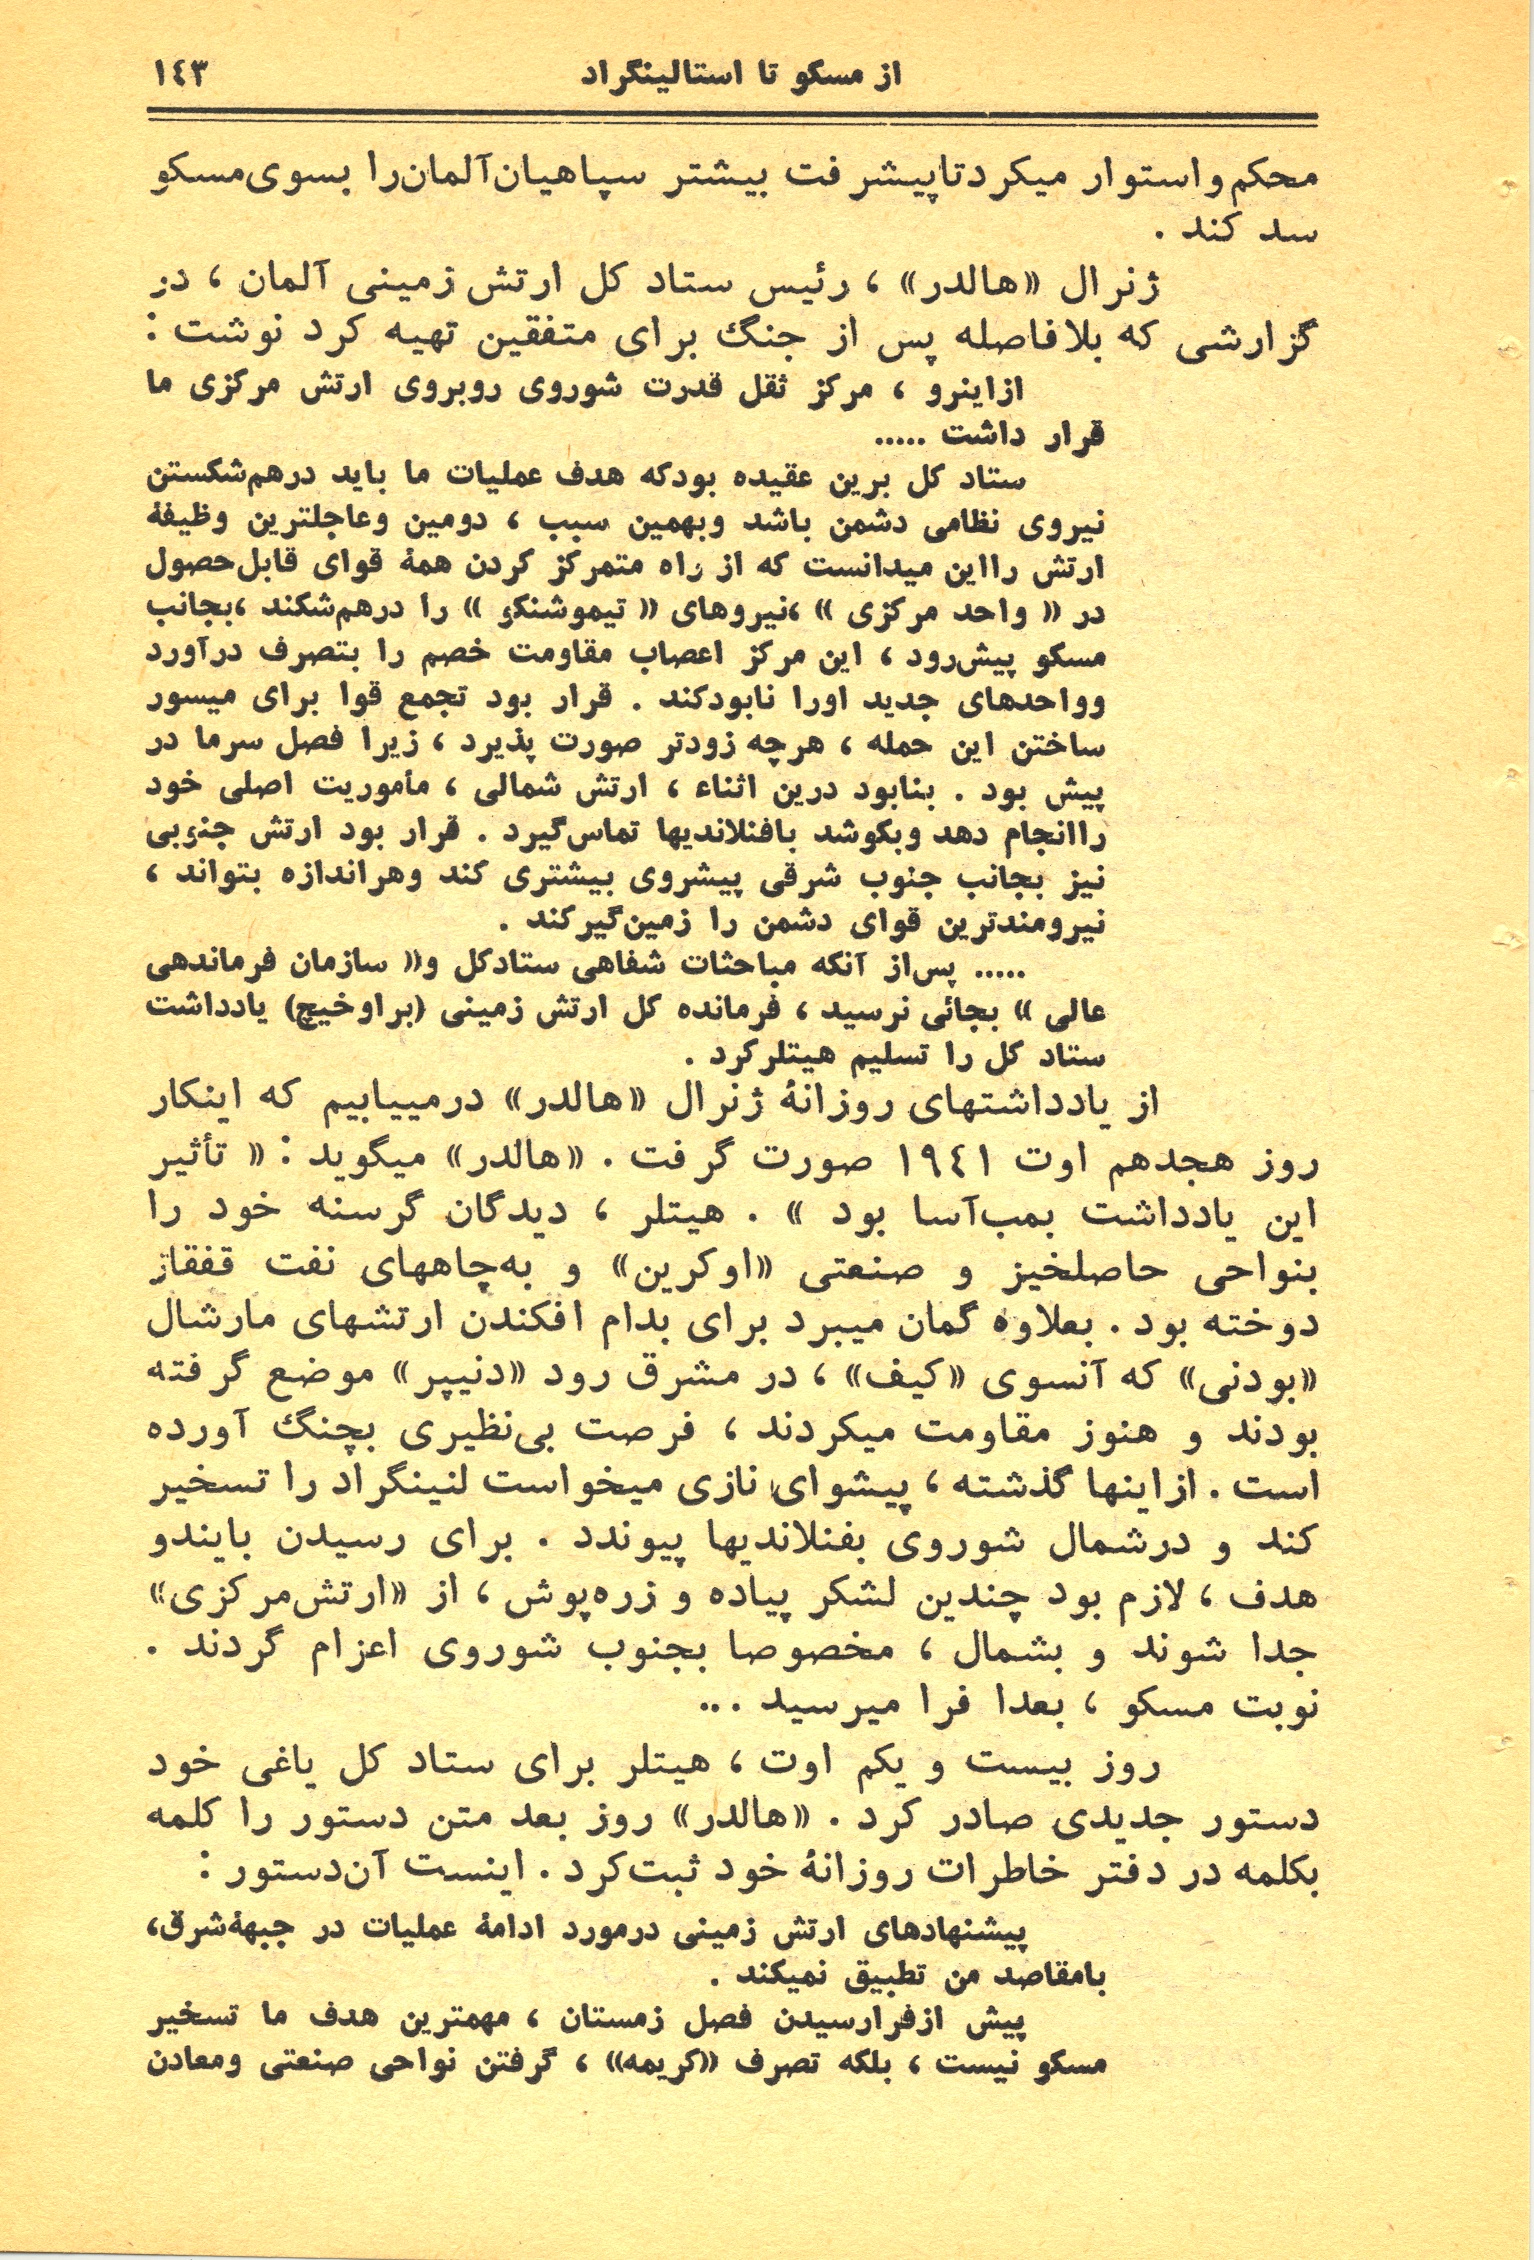 از مسکو تا استالینگراد
۱٤۳
محکم‌و‌استوار میکرد‌تا‌پیشرفت بیشتر سپاهیان‌آلمان‌را بسوی‌مسکو
سد کند .
ژنرال «هالدر» ، رئیس ستاد کل ارتش زمینی آلمان ، در
گزارشی که بلافاصله پس از جنگ برای متفقین تهیه کرد نوشت :
ازاینرو ، مرکز ثقل قدرت شوروی روبروی ارتش مرکزی ما
قرار داشت .....
ستاد کل برین عقیده بودکه هدف عملیات ما باید درهم‌شکستن
نیروی نظامی دشمن باشد وبهمین سبب ، دومین وعاجلترین وظیفهٔ
ارتش رااین میدانست که از راه متمرکز کردن همهٔ قوای قابل‌حصول
در « واحد مرکزی » ،نیروهای « تیموشنکو » را درهم‌شکند ،بجانب
مسکو پیش‌رود ، این مرکز اعصاب مقاومت خصم را بتصرف درآورد
وواحدهای جدید اورا نابودکند . قرار بود تجمع قوا برای میسور
ساختن این حمله ، هرچه زودتر صورت پذیرد ، زیرا فصل سرما در
پیش بود . بنابود درین اثناء ، ارتش شمالی ، مأموریت اصلی خود
راانجام دهد وبکوشد بافنلاندیها تماس‌گیرد . قرار بود ارتش جنوبی
نیز بجانب جنوب شرقی پیشروی بیشتری کند وهراندازه بتواند ،
نیرومندترین قوای دشمن را زمین‌گیرکند .
..... پس‌از آنکه مباحثات شفاهی ستادکل و« سازمان فرماندهی
عالی » بجائی نرسید ، فرمانده کل ارتش زمینی (براوخیچ) یادداشت
ستاد کل را تسلیم هیتلرکرد .
از یادداشتهای روزانهٔ ژنرال «هالدر» درمییابیم که اینکار
روز هجدهم اوت ۱۹٤۱ صورت گرفت . «هالدر» میگوید : « تأثیر
این یادداشت بمب‌آسا بود » . هیتلر ، دیدگان گرسنه خود را
بنواحی حاصلخیز و صنعتی «اوکرین» و به‌چاههای نفت قفقاز
دوخته بود . بعلاوه گمان میبرد برای بدام افکندن ارتشهای مارشال
«بودنی» که آنسوی «کیف» ، در مشرق رود «دنیپر» موضع گرفته
بودند و هنوز مقاومت میکردند ، فرصت بی‌نظیری بچنگ آورده
است . ازاینها گذشته ، پیشوای نازی میخواست لنینگراد را تسخیر
کند و درشمال شوروی بفنلاندیها پیوندد . برای رسیدن بایندو
هدف ، لازم بود چندین لشکر پیاده و زره‌پوش ، از «ارتش‌مرکزی»
جدا شوند و بشمال ، مخصوصا بجنوب شوروی اعزام گردند .
نوبت مسکو ، بعدا فرا میرسید ...
روز بیست و یکم اوت ، هیتلر برای ستاد کل یاغی خود
دستور جدیدی صادر کرد . «هالدر» روز بعد متن دستور را کلمه
بکلمه در دفتر خاطرات روزانهٔ خود ثبت‌کرد . اینست آن‌دستور :
پیشنهادهای ارتش زمینی درمورد ادامهٔ عملیات در جبههٔ‌شرق،
بامقاصد من تطبیق نمیکند .
پیش ازفرارسیدن فصل زمستان ، مهمترین هدف ما تسخیر
مسکو نیست ، بلکه تصرف «کریمه» ، گرفتن نواحی صنعتی ومعادن